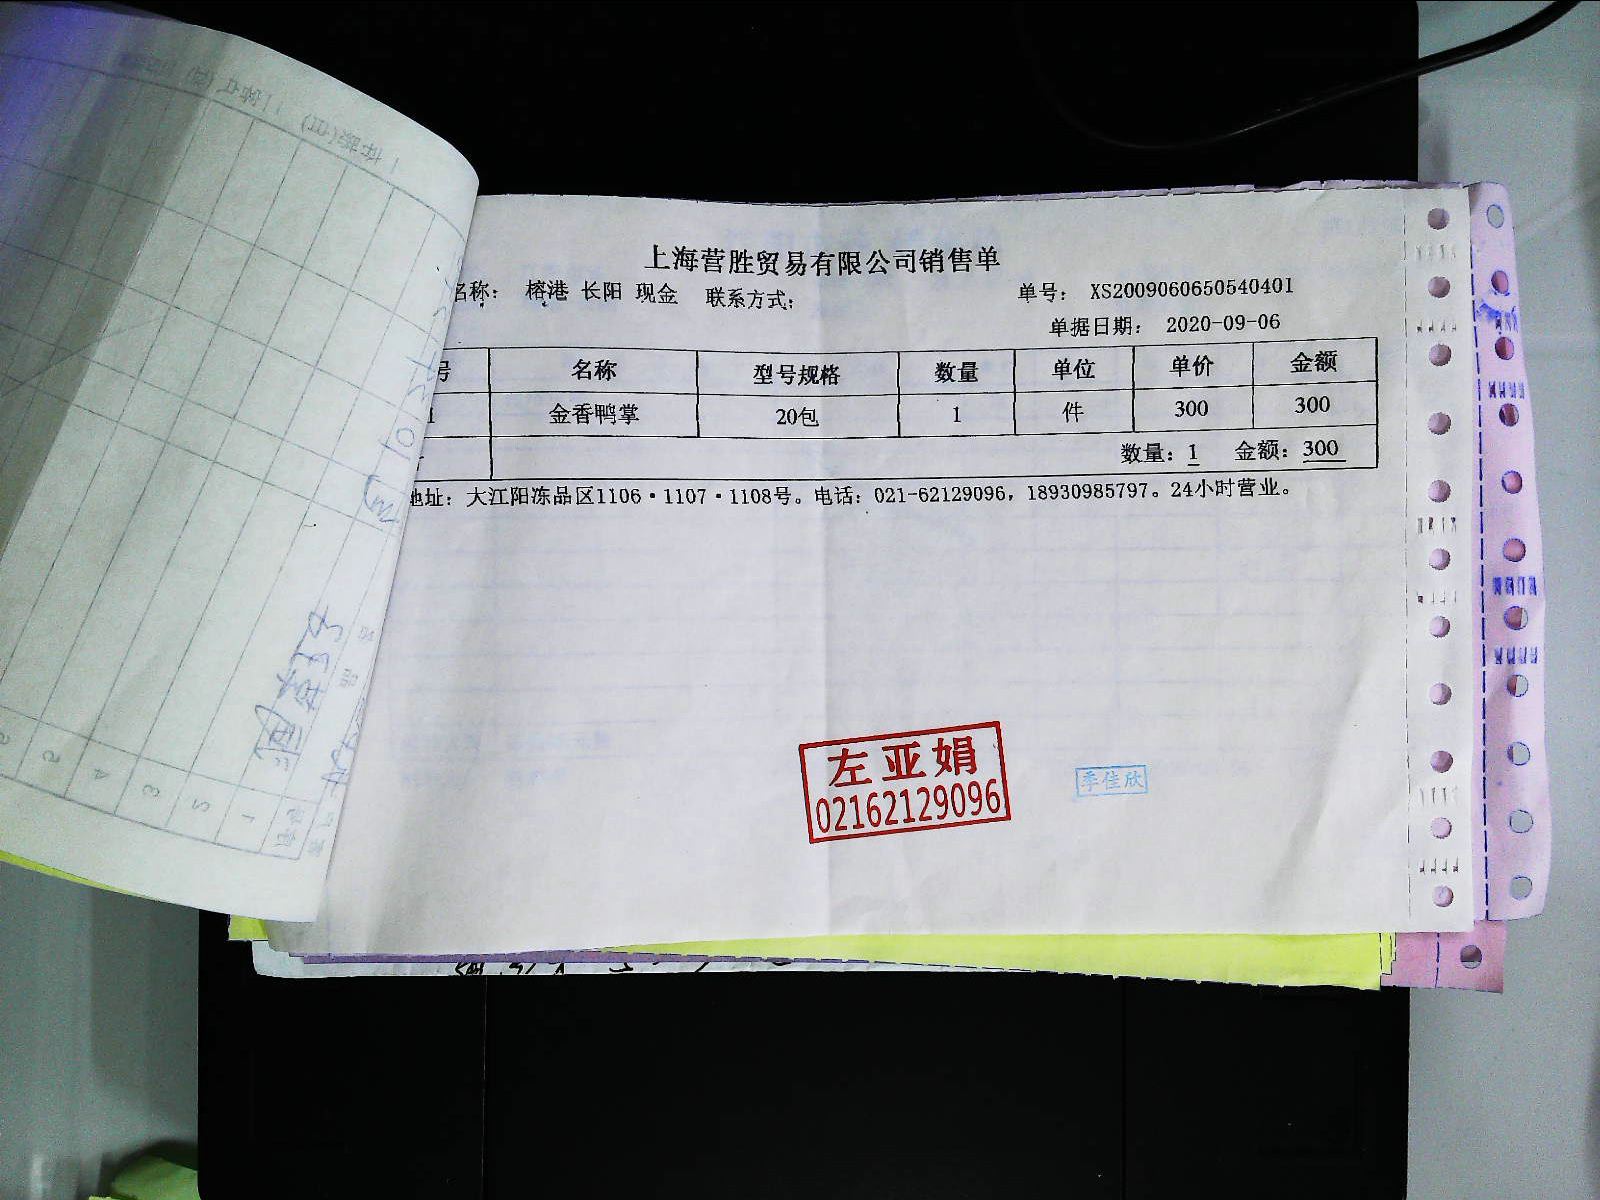 上海营胜贸易有限公司销售单
名称： 榕港 长阳 现金 联系方式： 单号： XS2009060650540401
单据日期： 2020-09-06
号 名称 型号规格 数量 单位 单价 金额
1 金香鸭掌 20包 1 件 300 300
数量：1 金额：300
地址：大江阳冻品区1106·1107·1108号。电话：021-62129096，18930985797。24小时营业。
左亚娟
02162129096
季佳欣